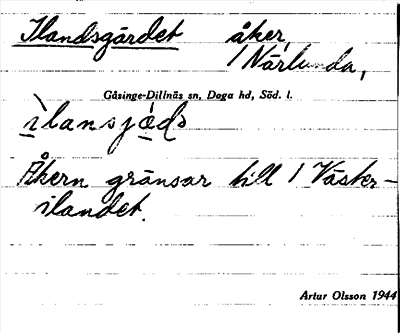 Ilandsgärdet åker,
/ Närlunda,
Gåsinge-Dillnäs sn, Daga hd, Söd. l.
ìlansjǻds
Åkern gränsar till / Väster-
ilandet.
Artur Olsson 1944